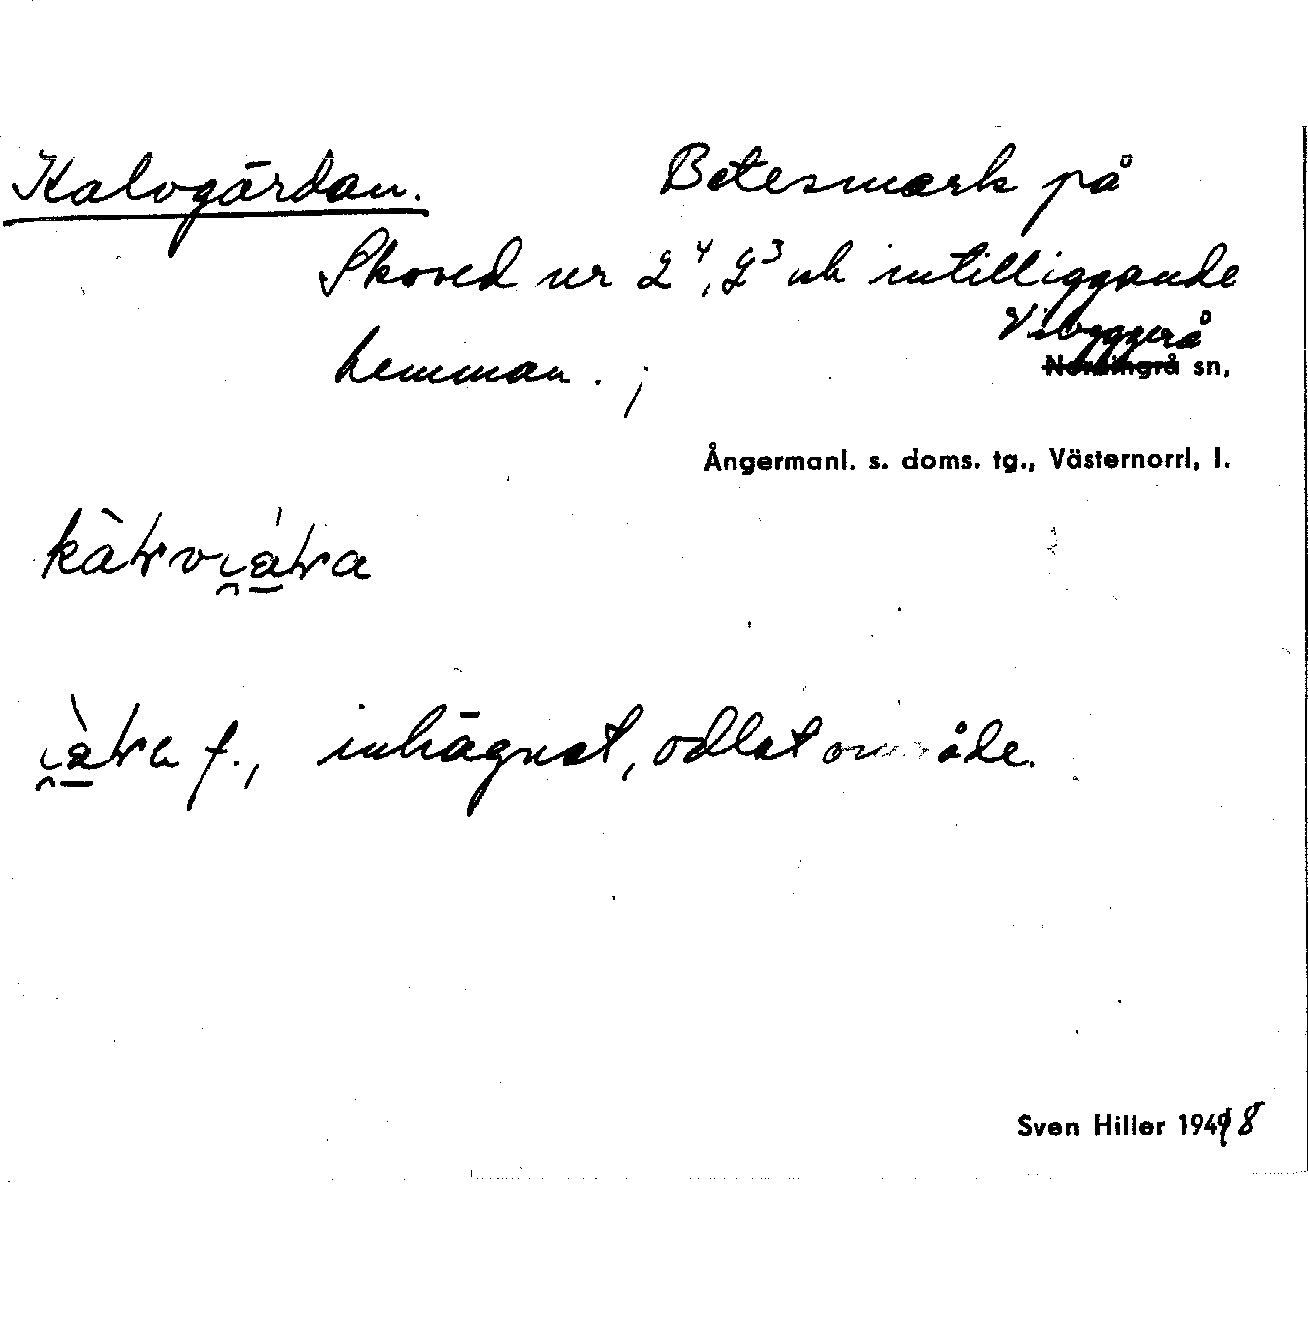 Kalvgärdan. Betesmark på
Skoved nr 2⁴, 2³ och intilliggande
hemman. ;
Vibyggerå
Nordingrå sn,
Ångermanl. s. doms. tg., Västernorrl, l.
f., inhägnat, odlat område.
Sven Hiller 1948